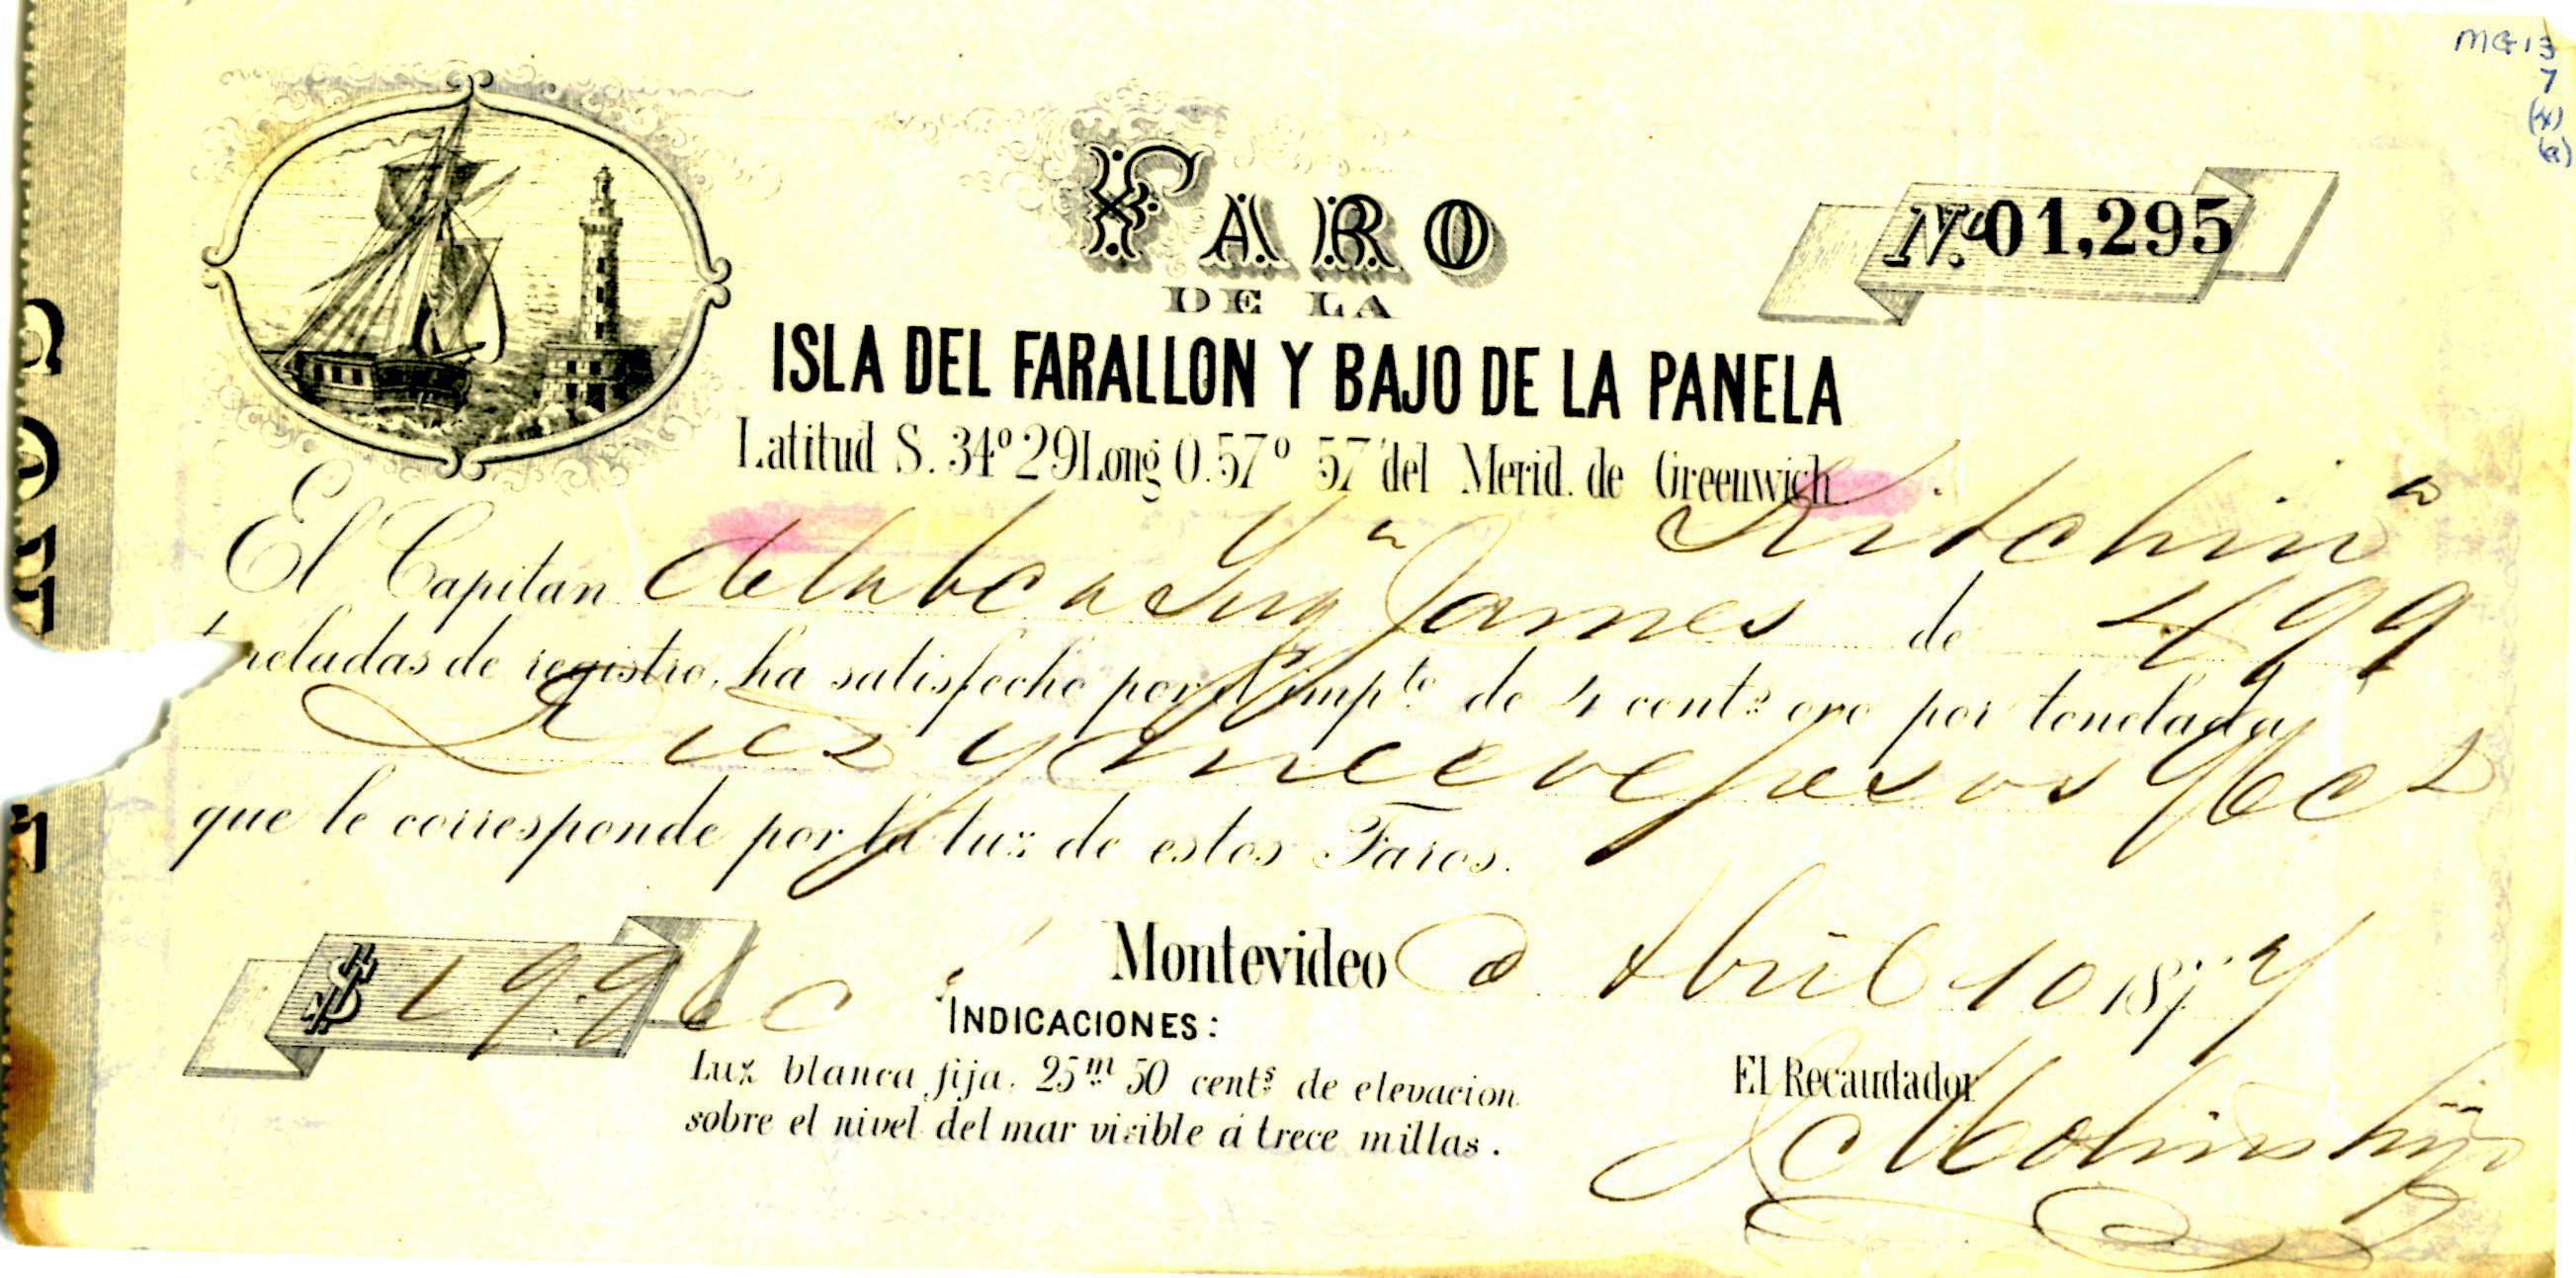 MG 13
7
(4)
(a)
FARO
Nº 01,295
DE LA
ISLA DEL FARALLON Y BAJO DE LA PANELA
Latitud S. 34º 29 Long O. 57º 57' del Merid. de Greenwich
El Capitan de la bca Yng.ª James Kitchin de 499
neladas de registro, ha satisfecho por el imp.to de 4 cent.s oro por tonelada
Diez y nueve pesos 96 cs
que le corresponde por la luz de estos Faros.
$ 19.96 c
Montevideo Abril 10 1877
INDICACIONES:
Luz blanca fija. 25m 50 cents de elevacion
sobre el nivel del mar visible á trece millas.
El Recaudador
Molins hijo